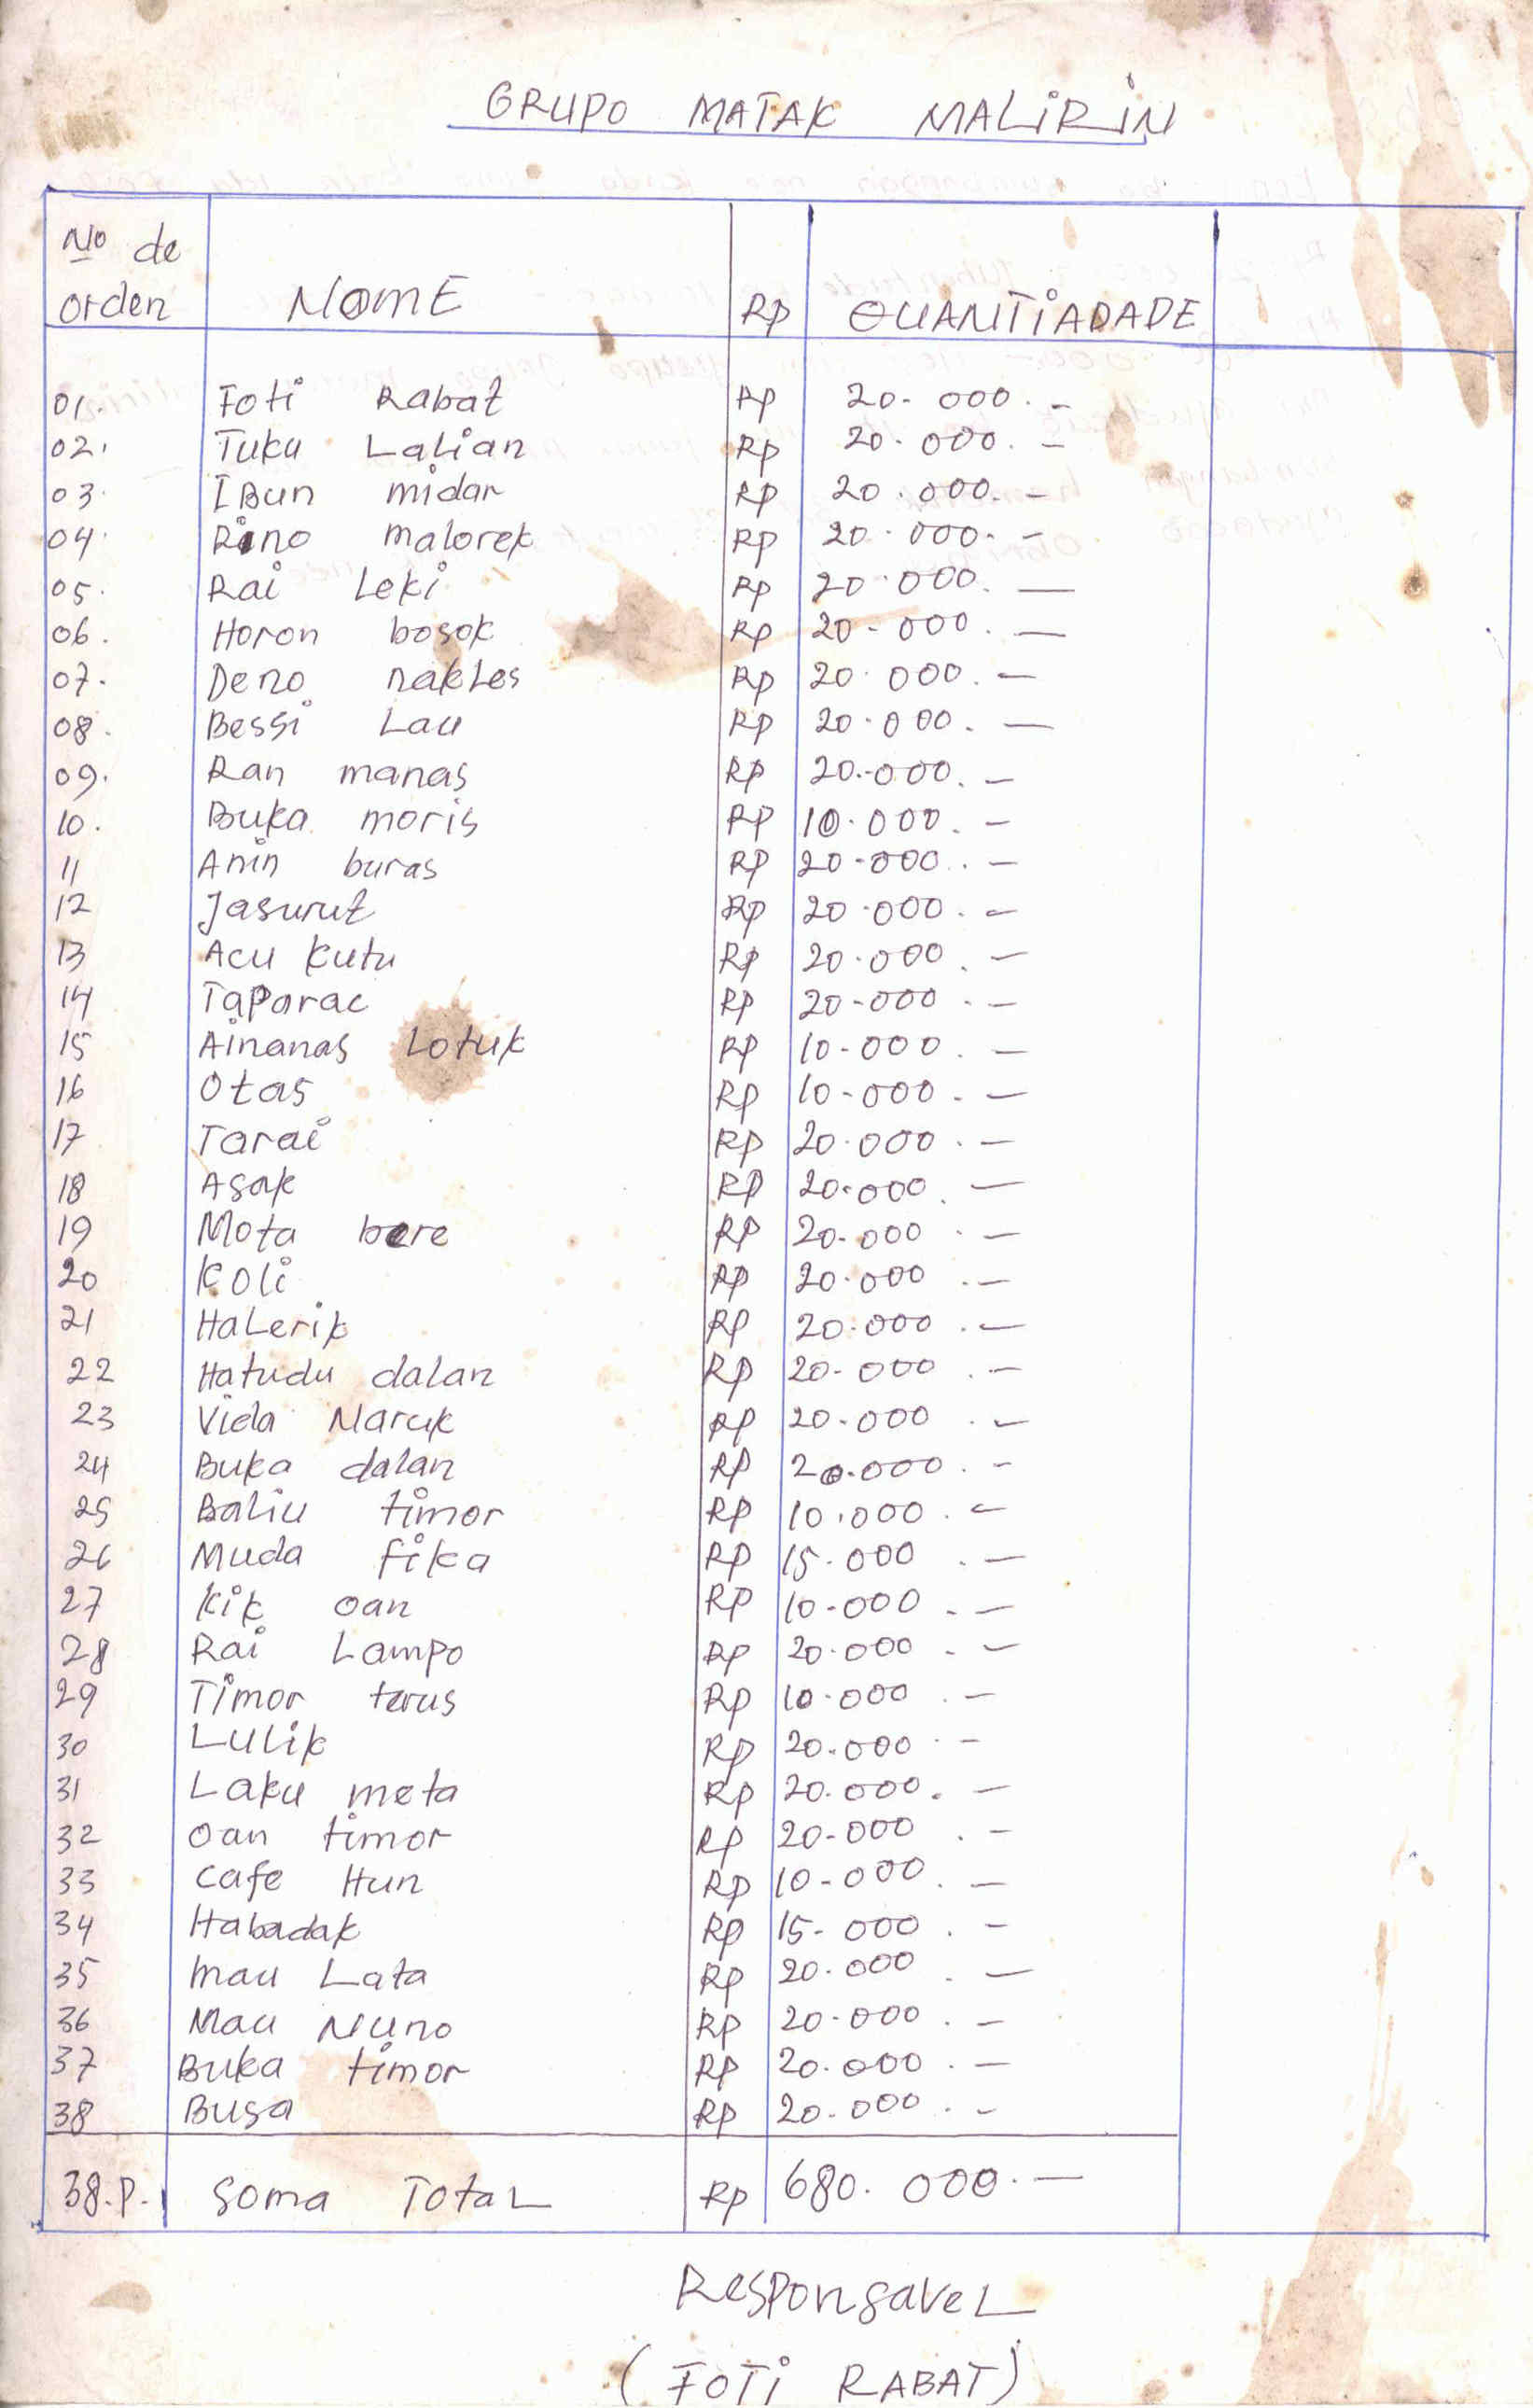 GRUPO MATAK MALIRIN
No de
orden NOME RP QUANTIADADE
01. Foti Rabat Rp 20.000.-
02. Tuku Lalian Rp 20.000.-
03. IBun midar Rp 20.000.-
04. Rino malorek Rp 20.000.-
05. Rai Leki Rp 20.000.-
06. Horon bosok Rp 20.000.-
07. Deno nakLes Rp 20.000.-
08. Bessi Lau Rp 20.000.-
09. Ran manas RP 20.000.-
10. Buka moris RP 10.000.-
11 Anin buras RP 20.000.-
12 Jasurut Rp 20.000.-
13 Acu kutu Rp 20.000.-
14 Taparac RP 20.000.-
15 Ainanas Lotuk RP 10.000.-
16 Otas RP 10.000.-
17 Tarai RP 20.000.-
18 Asak RP 20.000.-
19 Mota bere RP 20.000.-
20 Koli RP 20.000.-
21 HaLerik RP 20.000.-
22 Hatudu dalan RP 20.000.-
23 Vida Naruk RP 20.000.-
24 Buka dalan RP 20.000.-
25 Baliu timor RP 10.000.-
26 Muda fika RP 15.000.-
27 Kik oan RP 10.000.-
28 Rai Lampo RP 20.000.-
29 Timor terus Rp 10.000.-
30 Lulik Rp 20.000.-
31 Laku meta Rp 20.000.-
32 Oan timor Rp 20.000.-
33 Cafe Hun Rp 10.000.-
34 Habadak Rp 15.000.-
35 Mau Lata Rp 20.000.-
36 Mau Nuno Rp 20.000.-
37 Buka timor RP 20.000.-
38 Busa RP 20.000.-
38.P. Soma TotaL Rp 680.000.-
ResponsaveL
(FOTI RABAT)